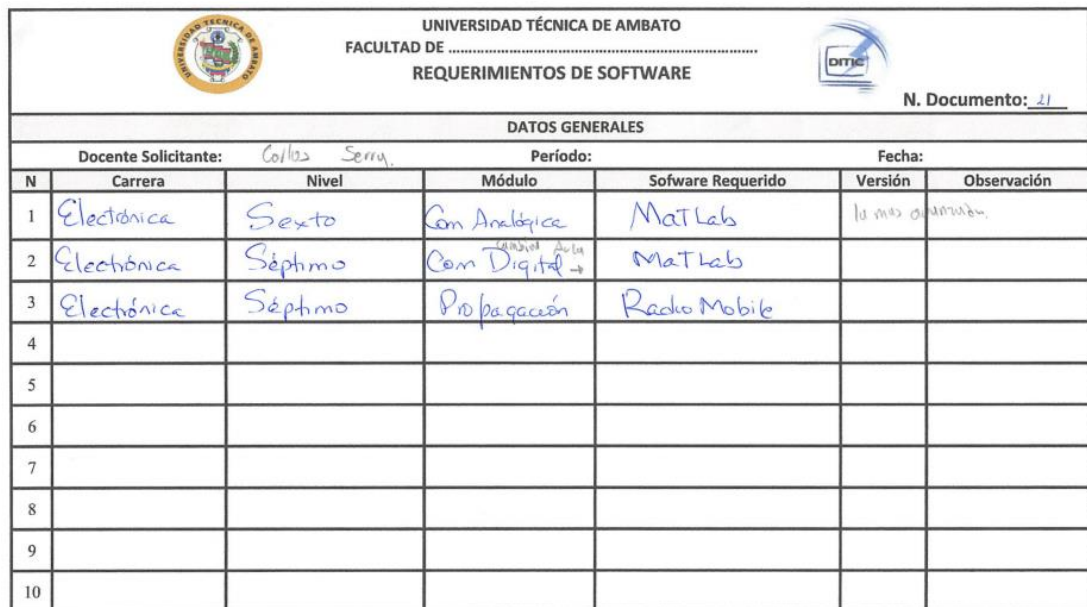 UNIVERSIDAD TECNICA DE AMBATO
UNIVERSIDAD TÉCNICA DE AMBATO
FACULTAD DE ................................................................................
REQUERIMIENTOS DE SOFTWARE
DITIC
N. Documento: 21
DATOS GENERALES
Docente Solicitante: Carlos Período: Fecha:
N Carrera Nivel Módulo Sofware Requerido Versión Observación
1 Electrónica Sexto Com Analógica MatLab la mas
2 Electrónica Séptimo Com Digital → MatLab
cambiar Aula
3 Electrónica Séptimo Propagación Radio Mobile
4
5
6
7
8
9
10